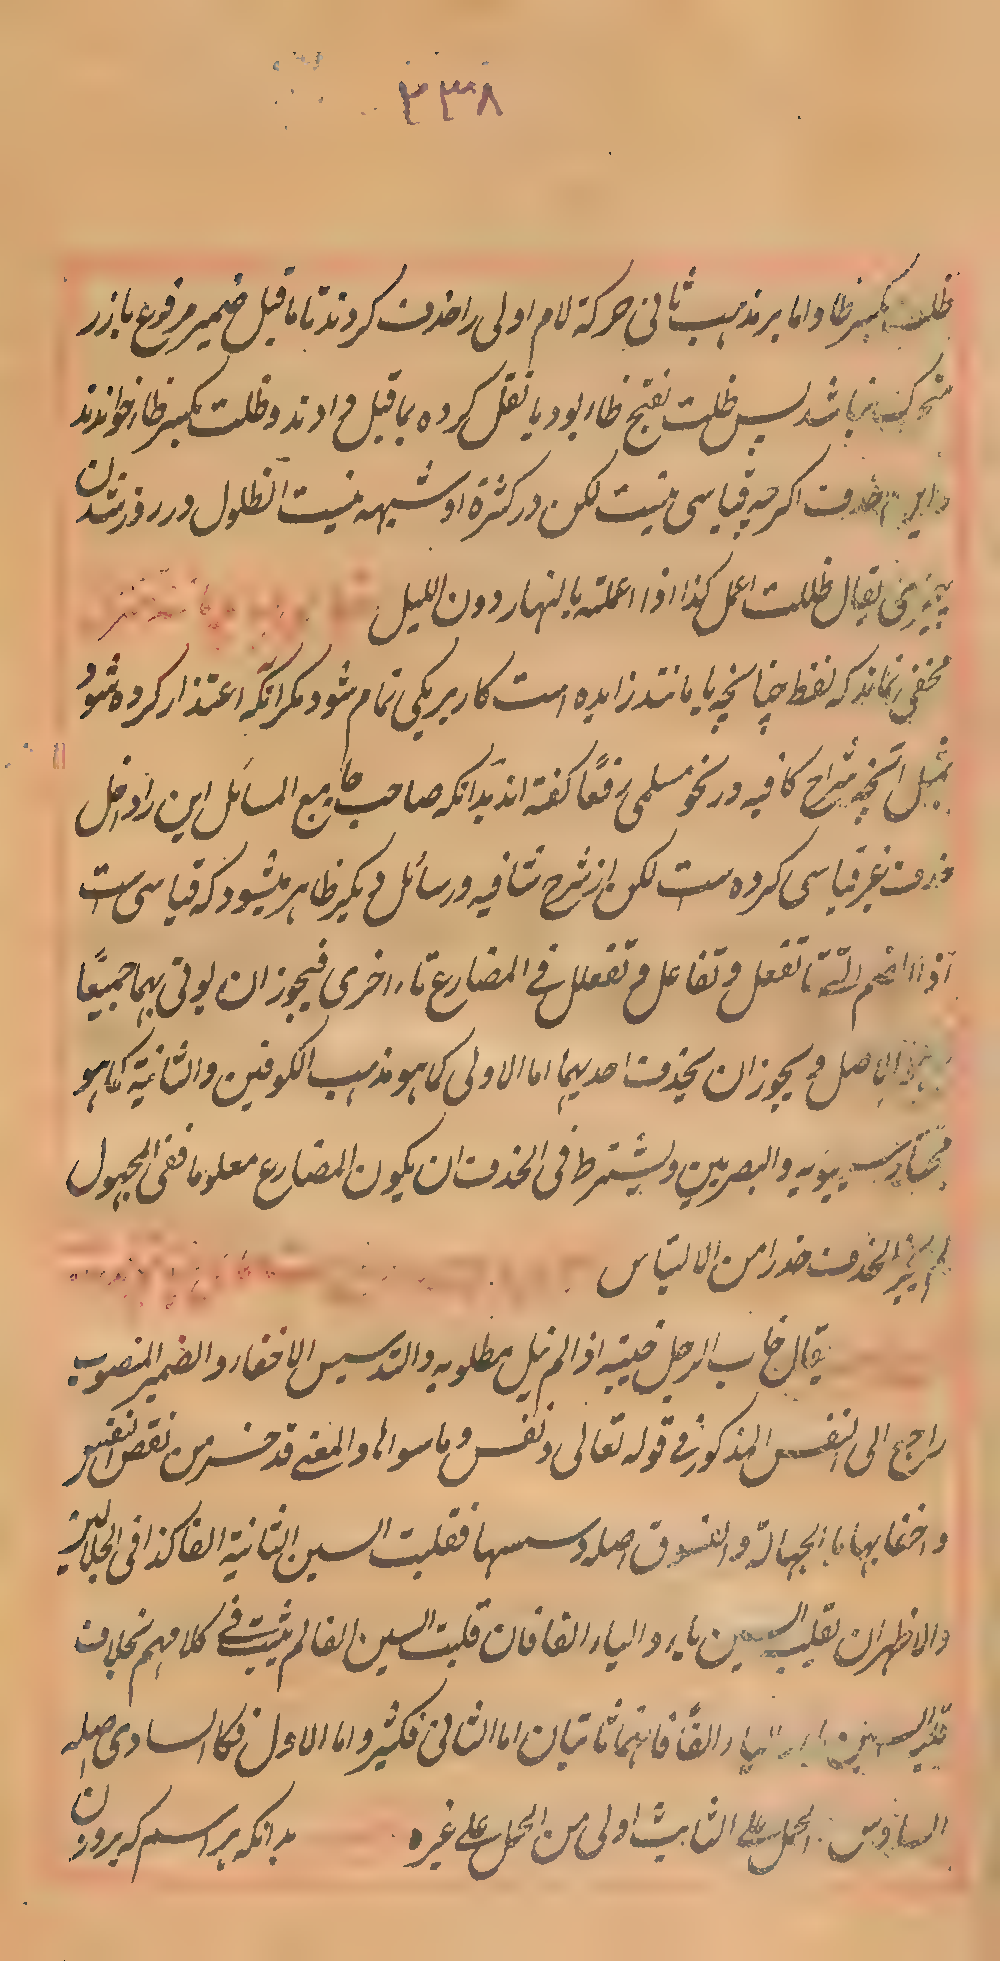 ٢٣٨
ظلت بکسر ظا و اما بر مذهب ثانی حرکة لام اولی را حذف کردند تا ماقبل ضمیر مرفوع بارز
متحرک نباشد پس ظلت بفتح ظاء بود یا نقل کرده بماقبل دادند و ظلت بکسر ظاء خواندند
و این حذف اکرچه قیاسی نیست لکن در کثرة او شبهه نیست الظلول در روز شدن
چیزی یقال ظللت اعمل کذا اذا اعملته بالنهار دون اللیل
مخفی نماند که لفظ چنانچه یا مانند زایده است کار بر یکی تمام شود مکر آنکه اعتذار کرده شود
بمثل آنچه شراح کافیه در نحو مسلمی رفعًا کفته اند بدانکه صاحب جامع المسائل این را داخل
حذف غیر قیاسی کرده ست لکن از شرح شافیه و رسائل دیکر ظاهر میشود که قیاسی ست
اذا انضم الی تا تفعل و تفاعل و تفعلل فی المضارع تاء اخری فیجوز ان یوتی بهما جمیعًا
الاصل و یجوز ان یحذف احدیهما اما الاولی کما هو مذهب الکوفین و الثانیة کما هو
مختار سیبویه و البصریین و یشترط فی الحذف ان یکون المضارع معلوما ففی المجهول
لم یجز الحذف حذرا من الالتباس
یقال خاب الرجل خیبة اذا لم ینل مطلوبه و التدسیس الاخفاء و الضمیر المنصوب
راجع الی النفس المذکور فی قوله تعالی و نفس و ما سواها و المعنی قد خسر من نقص النفس
و اخفایها بالجهالة و الفسوق اصله دسسها فقلبت السین الثانیة الفا کذا فی الجلالین
و الاظهر ان تقلب السین یاء و الیاء الفا فان قلبت السین الفا لم یثبت فی کلامهم بخلاف
السین یاء و الیاء الفًا فانهما ثابتان اما الثانی فکثیر و اما الاول فکالسادی اصله
السادس الحمل علی الثابت اولی من الحمل علی غیره بدانکه هر اسم که بر وزن